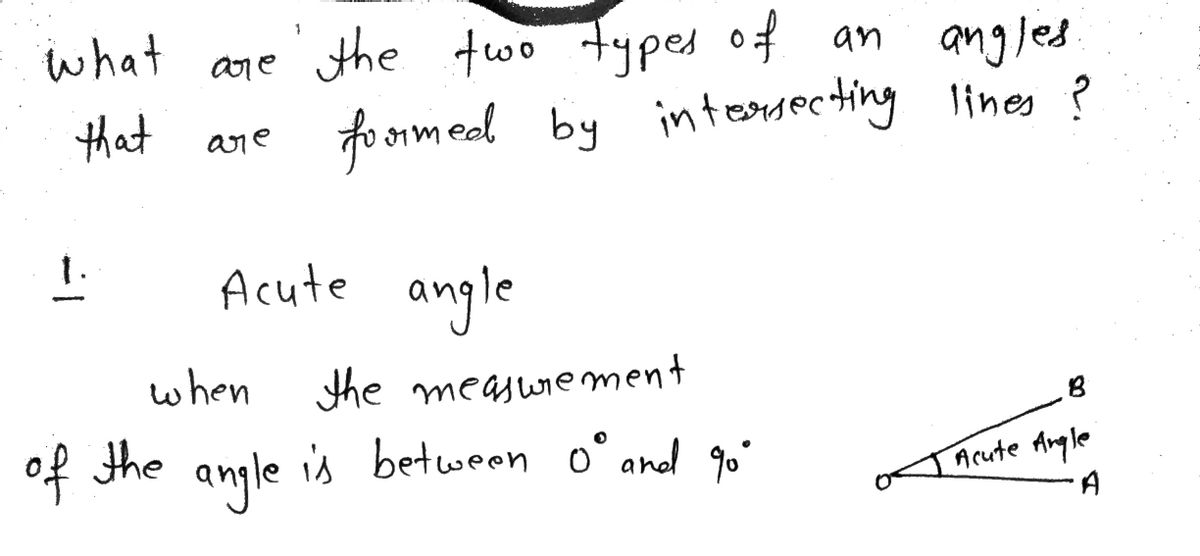 what are the two types of an angles
that are formed by intersecting lines ?
1. Acute angle
when the measurement
of the angle is between 0° and 90°
B
Acute Angle
O
A